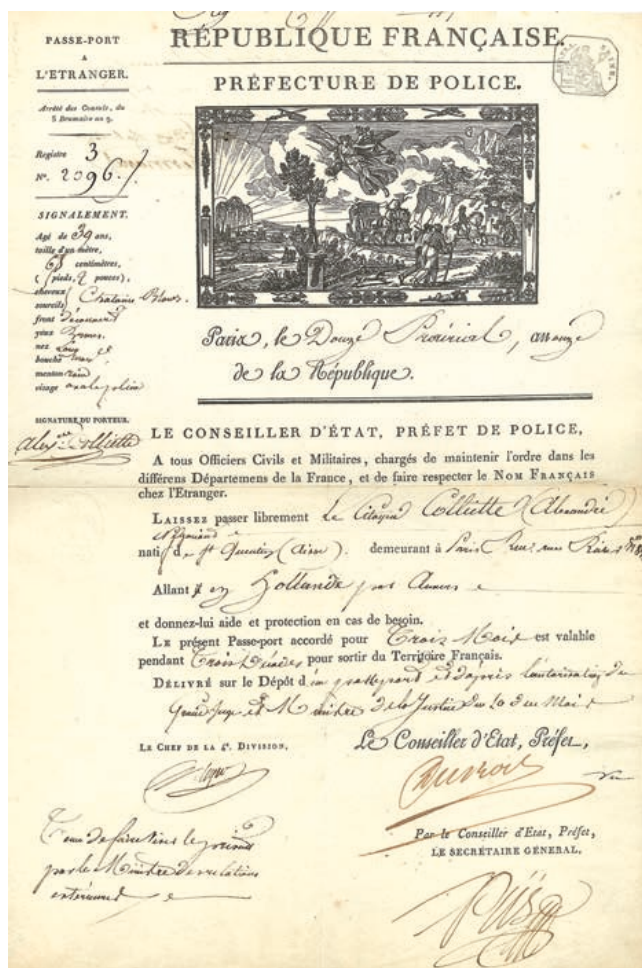 PASSE-PORT
A
L'ETRANGER.
Arrêté des Consuls, du
8 Brumaire an 9.
Registre 3
N°. 2096.
SIGNALEMENT.
Agé de 39 ans,
taille d'un mètre,
68 centimètres,
( pieds, pouces),
cheveux
sourcils
front découvert
yeux
nez long
bouche
menton rond
visage ovale plein
SIGNATURE DU PORTEUR.
Alexdre Colliette
RÉPUBLIQUE FRANÇAISE.
PRÉFECTURE DE POLICE.
Paris, le Douze Prairial, an onze
de la République.
LE CONSEILLER D'ÉTAT, PRÉFET DE POLICE,
A tous Officiers Civils et Militaires, chargés de maintenir l'ordre dans les
différens Départemens de la France, et de faire respecter le NOM FRANÇAIS
chez l'Etranger.
LAISSEZ passer librement Le Citoyen Colliette (Alexandre)
natif de St Quentin (aisne). demeurant à Paris
Allant en Hollande par Anvers
et donnez-lui aide et protection en cas de besoin.
LE présent Passe-port accordé pour Trois Mois est valable
pendant Trois Décades pour sortir du Territoire Français.
DÉLIVRÉ sur le Dépôt d'un passeport et d'après l'autorisation du
Grand Juge et Ministre de la Justice du 20 du Mois
LE CHEF DE LA 4e. DIVISION,
Le Conseiller d'Etat, Préfet,
Par le Conseiller d'Etat, Préfet,
LE SECRÉTAIRE GÉNÉRAL.
par le Ministre des relations
extérieures